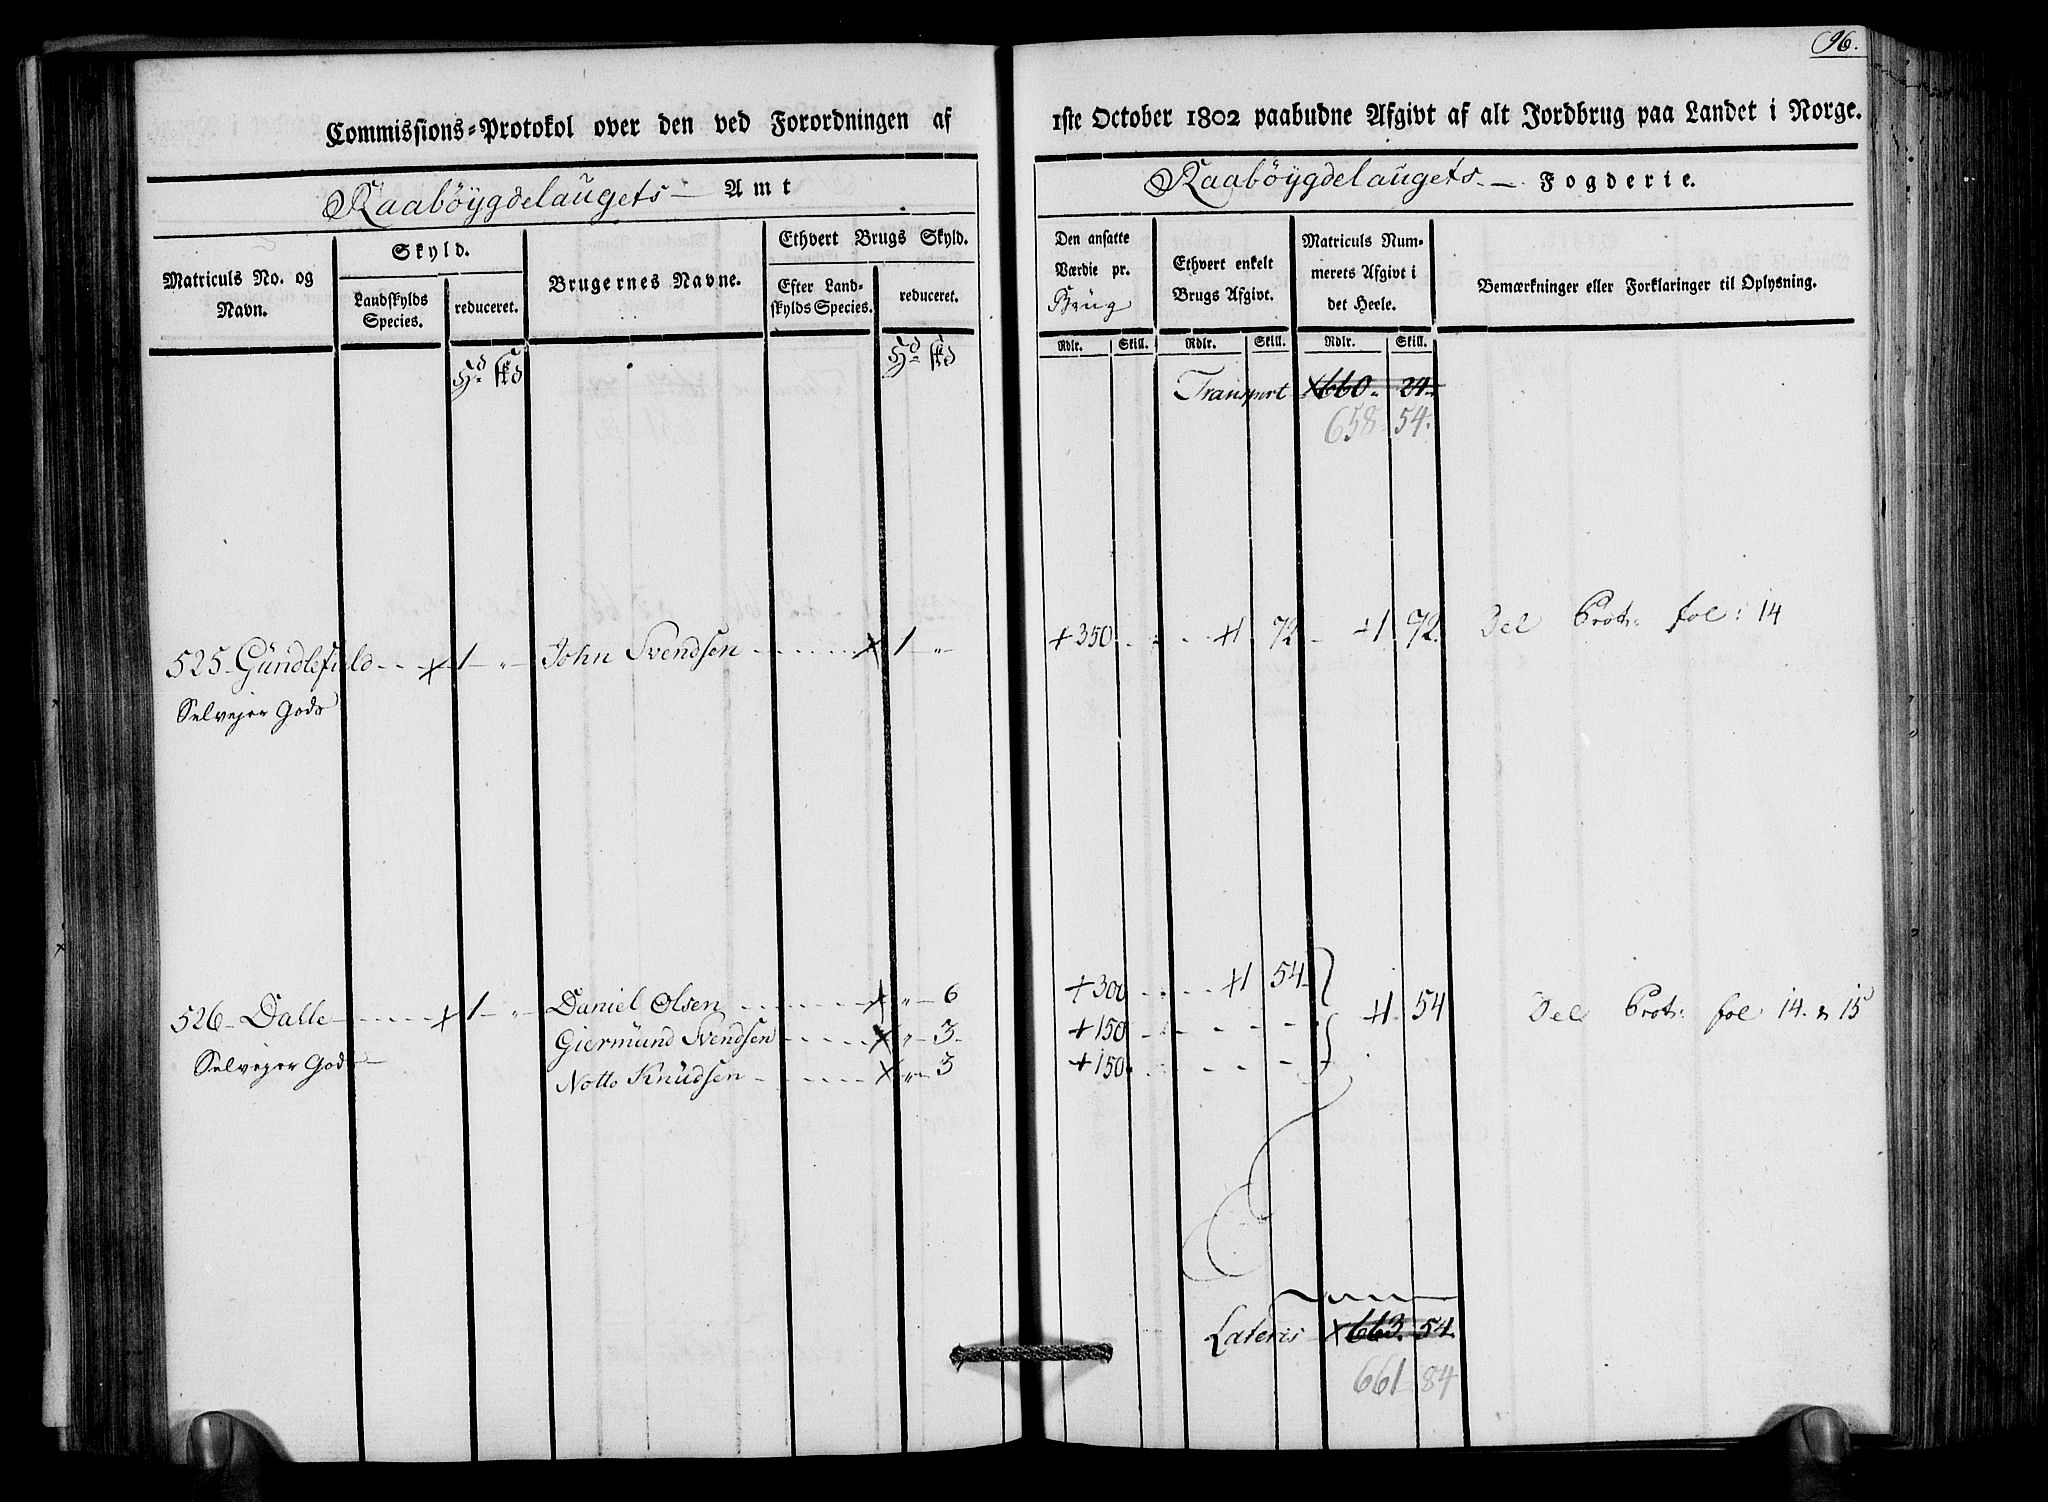 96.
Commissions-Protokol over den ved Forordningen af 1ste October 1802 paabudne Afgivt af alt Jordbrug paa Landet i Norge.
Raabøygdelaugets Amt
Raabøygdelaugets Fogderie.
Matriculs No. og Navn.
Skyld.
Landskylds Species.
reduceret.
Brugernes Navne.
Ethvert Brugs Skyld.
Efter Landskylds Species.
reduceret.
Den ansatte Værdie pr. Brüg
Ethvert enkelt Brugs Afgivt.
Matriculs Nummerets Afgivt i det Heele.
Bemærkninger eller Forklaringer til Oplysning.
Rdlr. Skill. Rdlr. Skill. Rdlr. Skill.
Transport 660. 24.
658 54.
525 Gündlefuld 1 " John Svendsen 1 " 350 1 72 1 72. Del Prot: fol: 14
Selvejer Gods
526 Dalle 1 " Daniel Olsen " 6 300 1 54 1 54 Del Prot: fol 14. & 15
Selvejer Gods
Giermünd Svendsen " 3 150
Notto Knüdsen " 3 150
Lateris 663. 54.
661 84